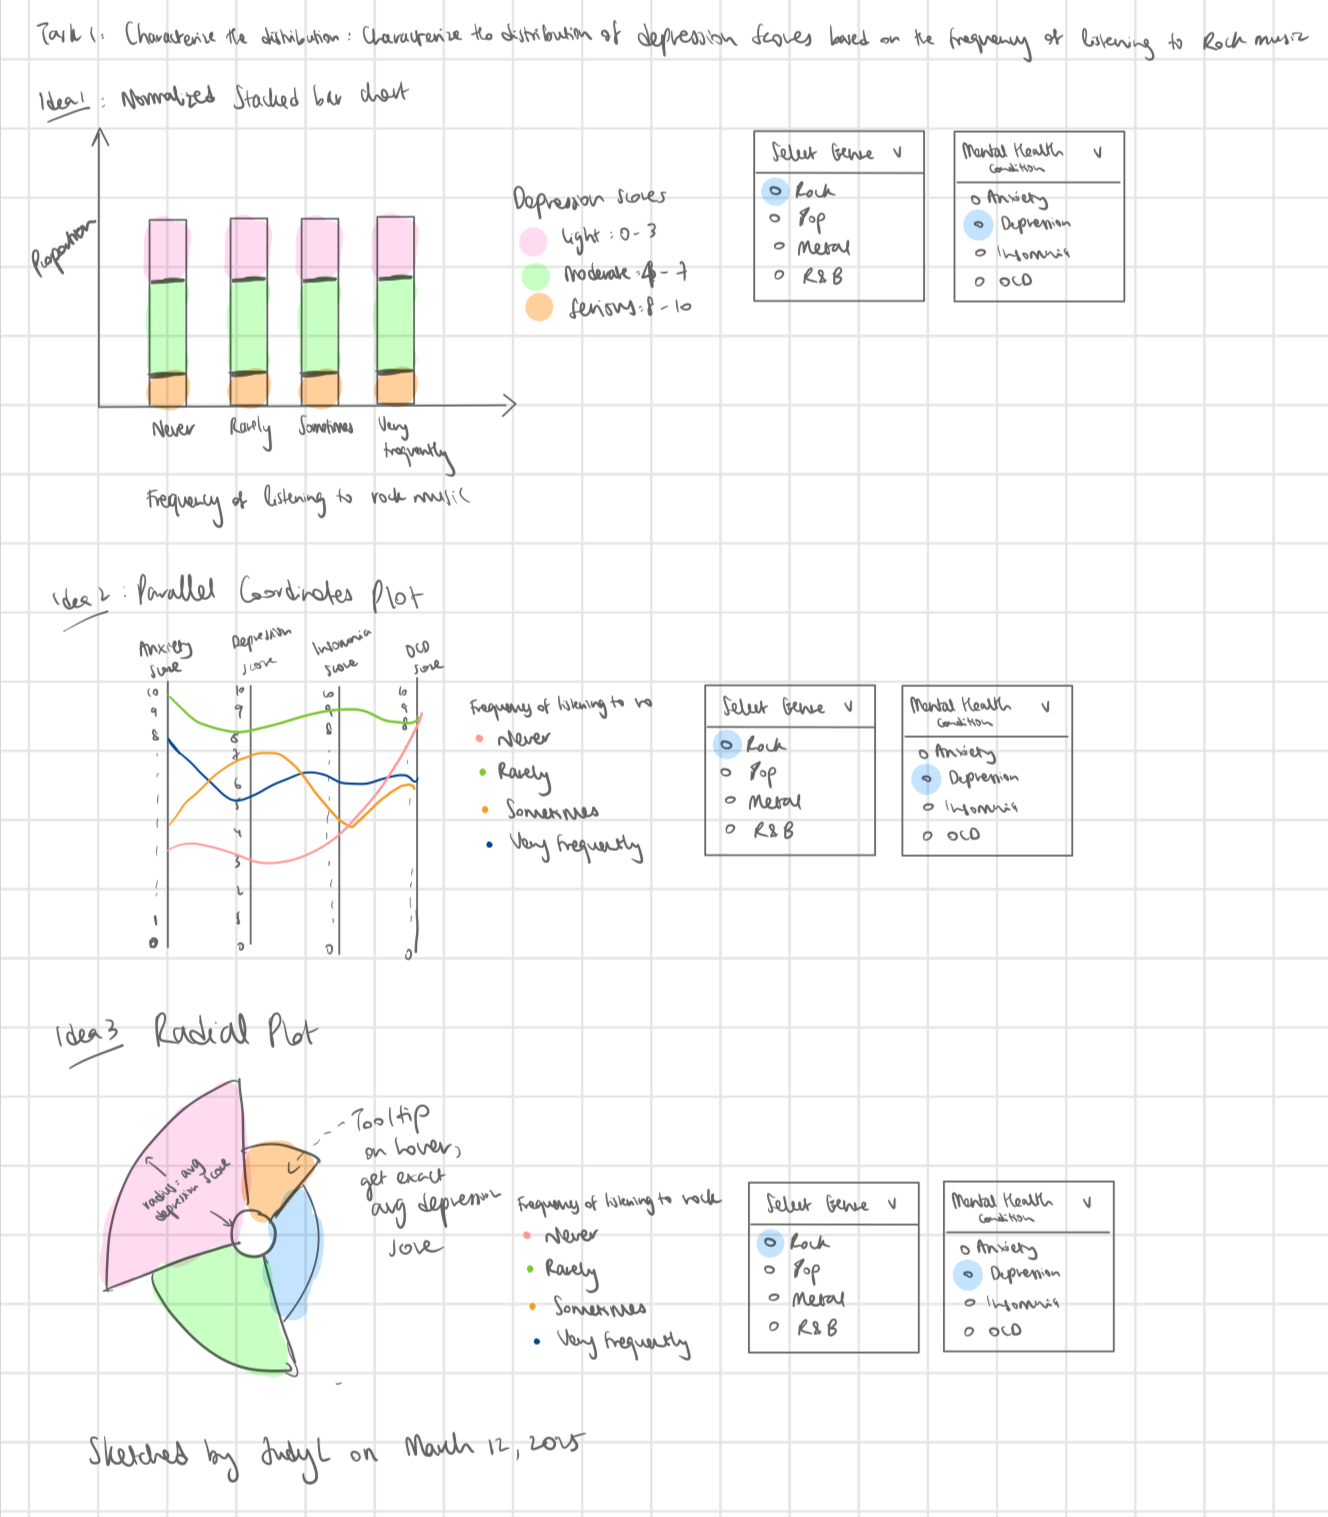 Task 1: Characterize the distribution: Characterize the distribution of depression scores based on the frequency of listening to Rock music
Idea 1: Normalized Stacked bar chart
Proportion
Never Rarely Sometimes Very frequently
Frequency of listening to rock music
Depression scores
light: 0-3
moderate: 4-7
Serious: 8-10
Select Genre v
Rock
Pop
Metal
R&B
Mental Health v
Condition
Anxiety
Depression
Insomnia
OCD
Idea 2: Parallel Coordinates Plot
Anxiety score
Depression score
Insomnia score
OCD score
10 9 8 1 0
10 9 8 7 6 5 4 3 2 1 0
10 9 8 0
10 9 8 0
Frequency of listening to ro
Never
Rarely
Sometimes
Very Frequently
Select Genre v
Rock
Pop
Metal
R&B
Mental Health v
Condition
Anxiety
Depression
Insomnia
OCD
Idea 3 Radial Plot
radius: avg
depression score
Tooltip
on hover,
get exact
avg depression
score
Frequency of listening to rock
Never
Rarely
Sometimes
Very Frequently
Select Genre v
Rock
Pop
Metal
R&B
Mental Health v
Condition
Anxiety
Depression
Insomnia
OCD
Sketched by Judy L on March 12, 2025